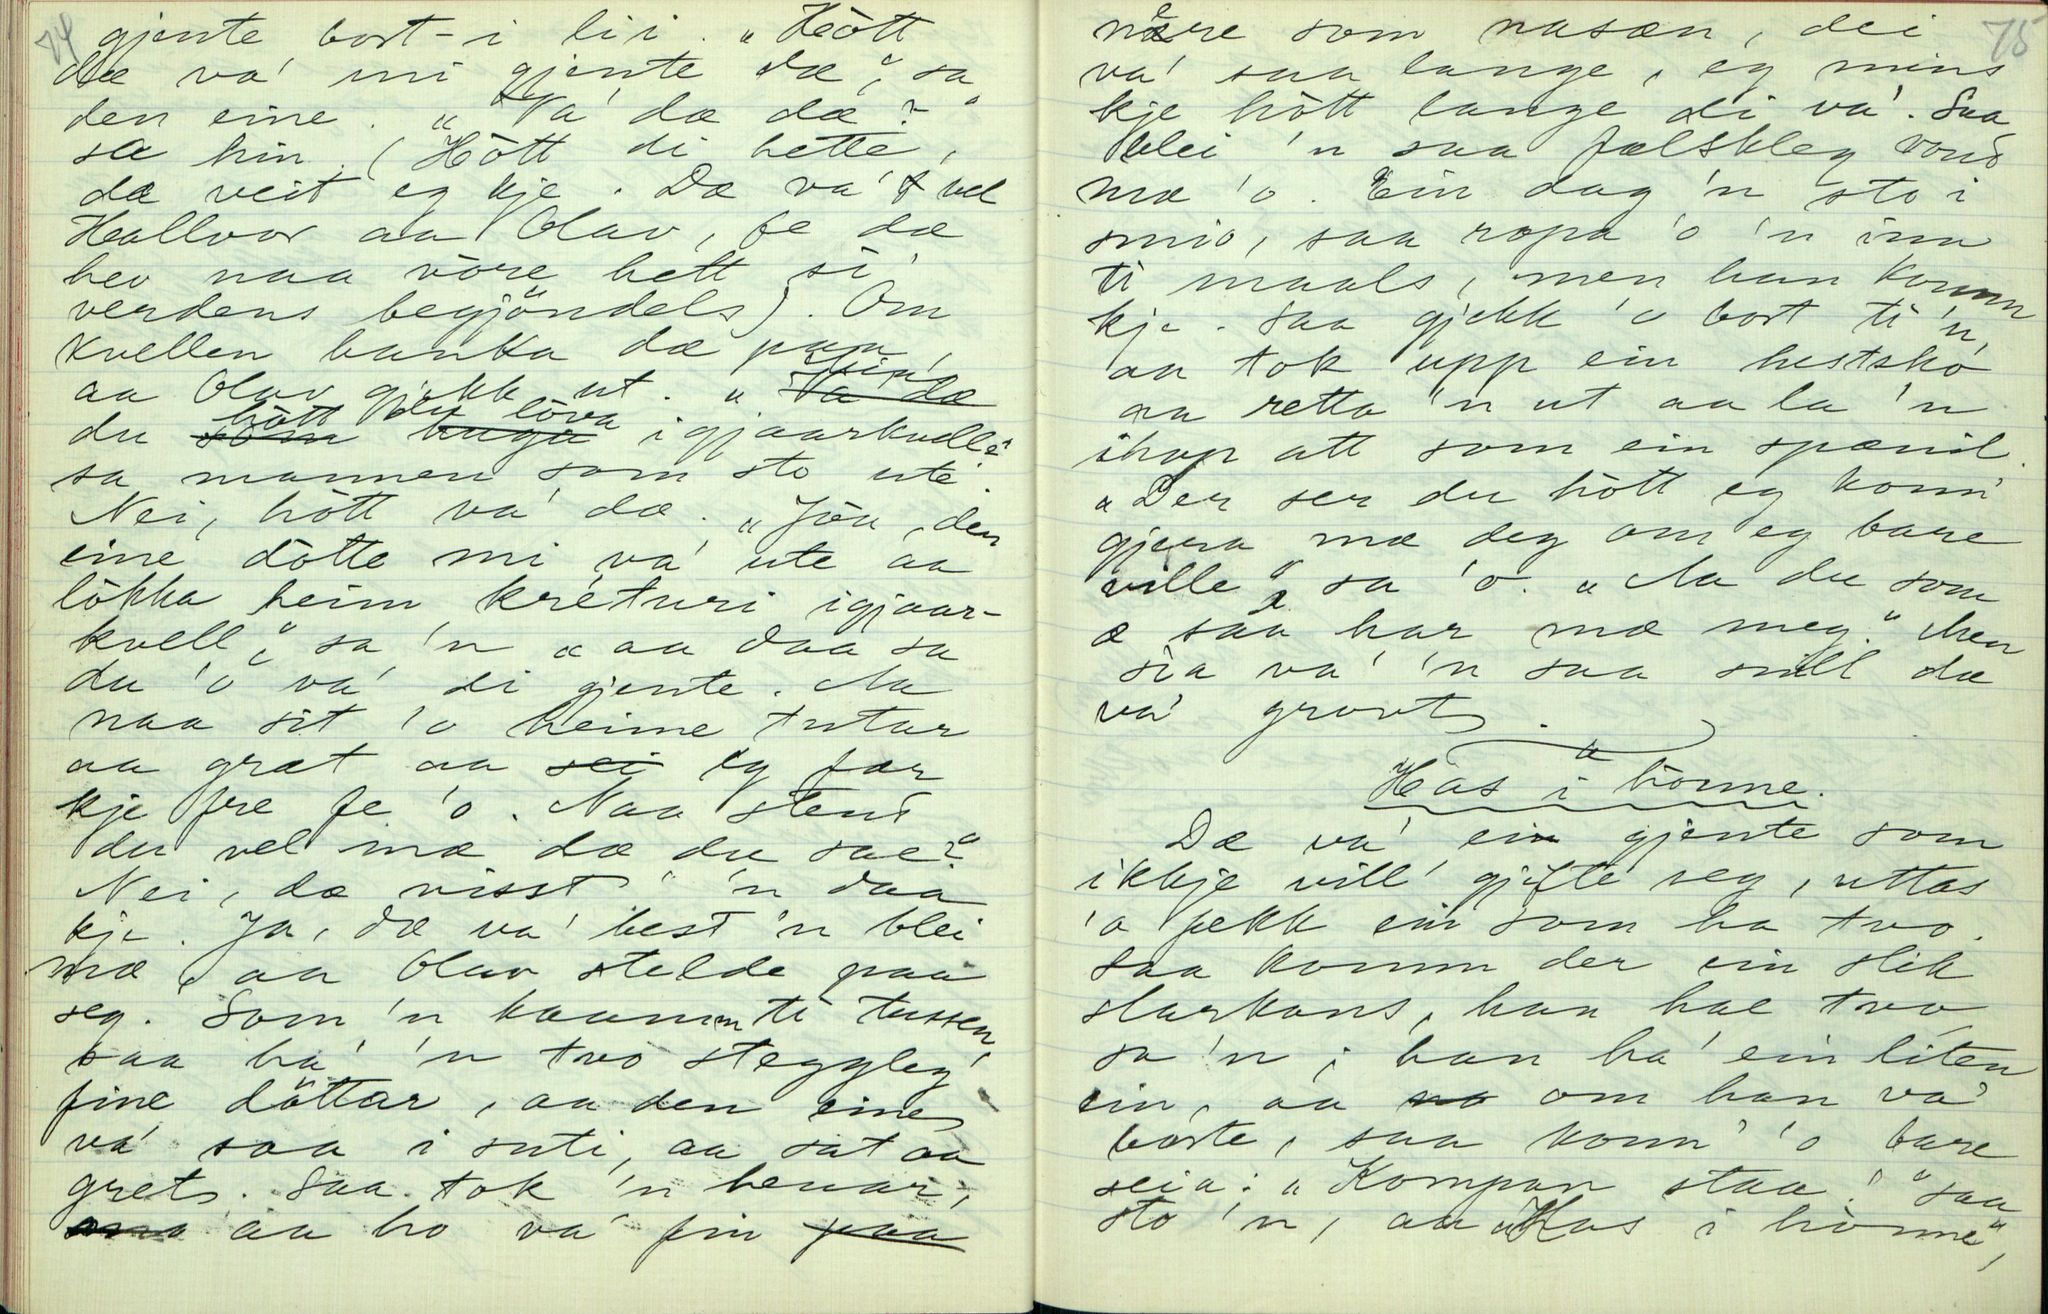 74
gjente bort-i lii. „Hòtt
dæ va' mi gjente dæ", sa
den eine. „Va' dæ dæ?"
sa hin. (Hòtt di hette,
dæ veit eg kje. Dæ va' vel
Hallvor aa Olav, fe dæ
hev naa vòre hett si'
verdens begjöndels). Om
kvellen banka dæ paa,
aa Olav gjekk ut. „Minn' 
du hòtt du lova igjaarkvell?"
sa mannen som sto ute.
Nei, hòtt va' dæ. „Jòu, den
eine dòtte mi va' ute aa
lòkka heim kréturi igjaar-
kvell," sa 'n „aa daa sa
du 'o va' di gjente. Aa
naa sit 'o heime tutar
aa græt aa eg fær
kje fre fe 'o. Naa stend
du vel mæ dæ du sae?"
Nei, dæ visst' 'n daa
kje. Ja, dæ va' best 'n blei
mæ, aa Olav stelde paa
seg. Som 'n kaamm ti tussen,
saa ha' 'n two steggleg'
fine döttar, aa den eine
va' saa i suti, aa sat aa
gret. Saa tok 'n henar,
aa ho va' fin
75
nære som nasæn, dei
va' saa lange, eg mins
kje hòtt lange di va'. Saa
blei 'n saa fælskleg vond
mæ 'o. Ein dag 'n sto i
smio, saa ropa 'o 'n inn
ti maals, men han komm
kje. Saa gjekk 'o bort ti 'n,
aa tok upp ein hestsko
aa retta 'n ut aa la 'n
ihop att som ein spænil.
„Der ser du hòtt eg konn'
gjera mæ deg om eg bare
ville", sa 'o. „Aa du som
æ saa har mæ meg." Men
sia va' 'n saa snill dæ
va' grovt.
Has i hònne.
Dæ va' ein gjente som
ikkje vill' gjifte seg, uttas
'o fekk ein som ha two.
Saa komm der ein slik
slarkans, han hae two
sa 'n; han ha' ein liten
ein, aa om han va'
borte, saa konn' 'o bare
seia: „Kompan staa!" saa
sto 'n, aa „Has i hònne",